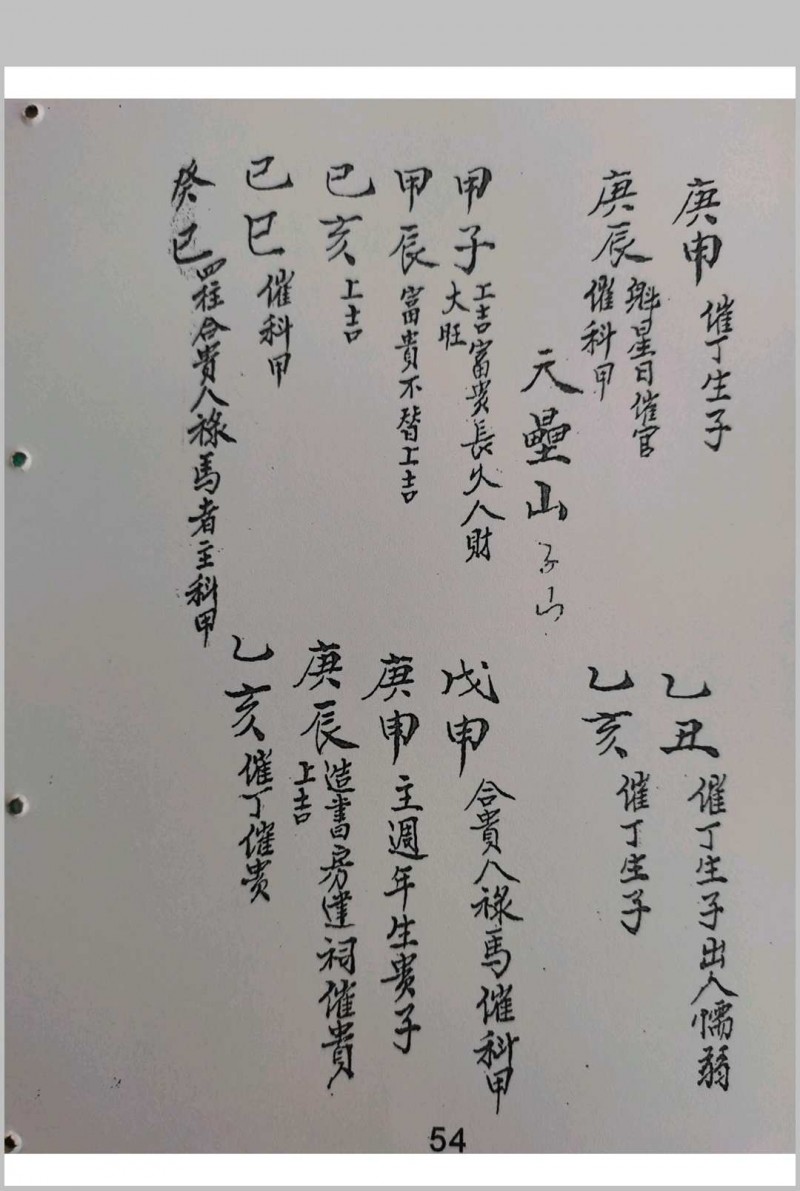 庚申 催丁生子
乙丑 催丁生子出人懦弱
庚辰 魁星日催官催科甲
乙亥 催丁生子
天壘山 子山
甲子 上吉富貴長久人財大旺
戊申 合貴人祿馬催科甲
甲辰 富貴不替上吉
庚申 主週年生貴子
己亥 上吉
庚辰 造書房建祠催貴上吉
己巳 催科甲
乙亥 催丁催貴
癸巳 四柱合貴人祿馬者主科甲
54